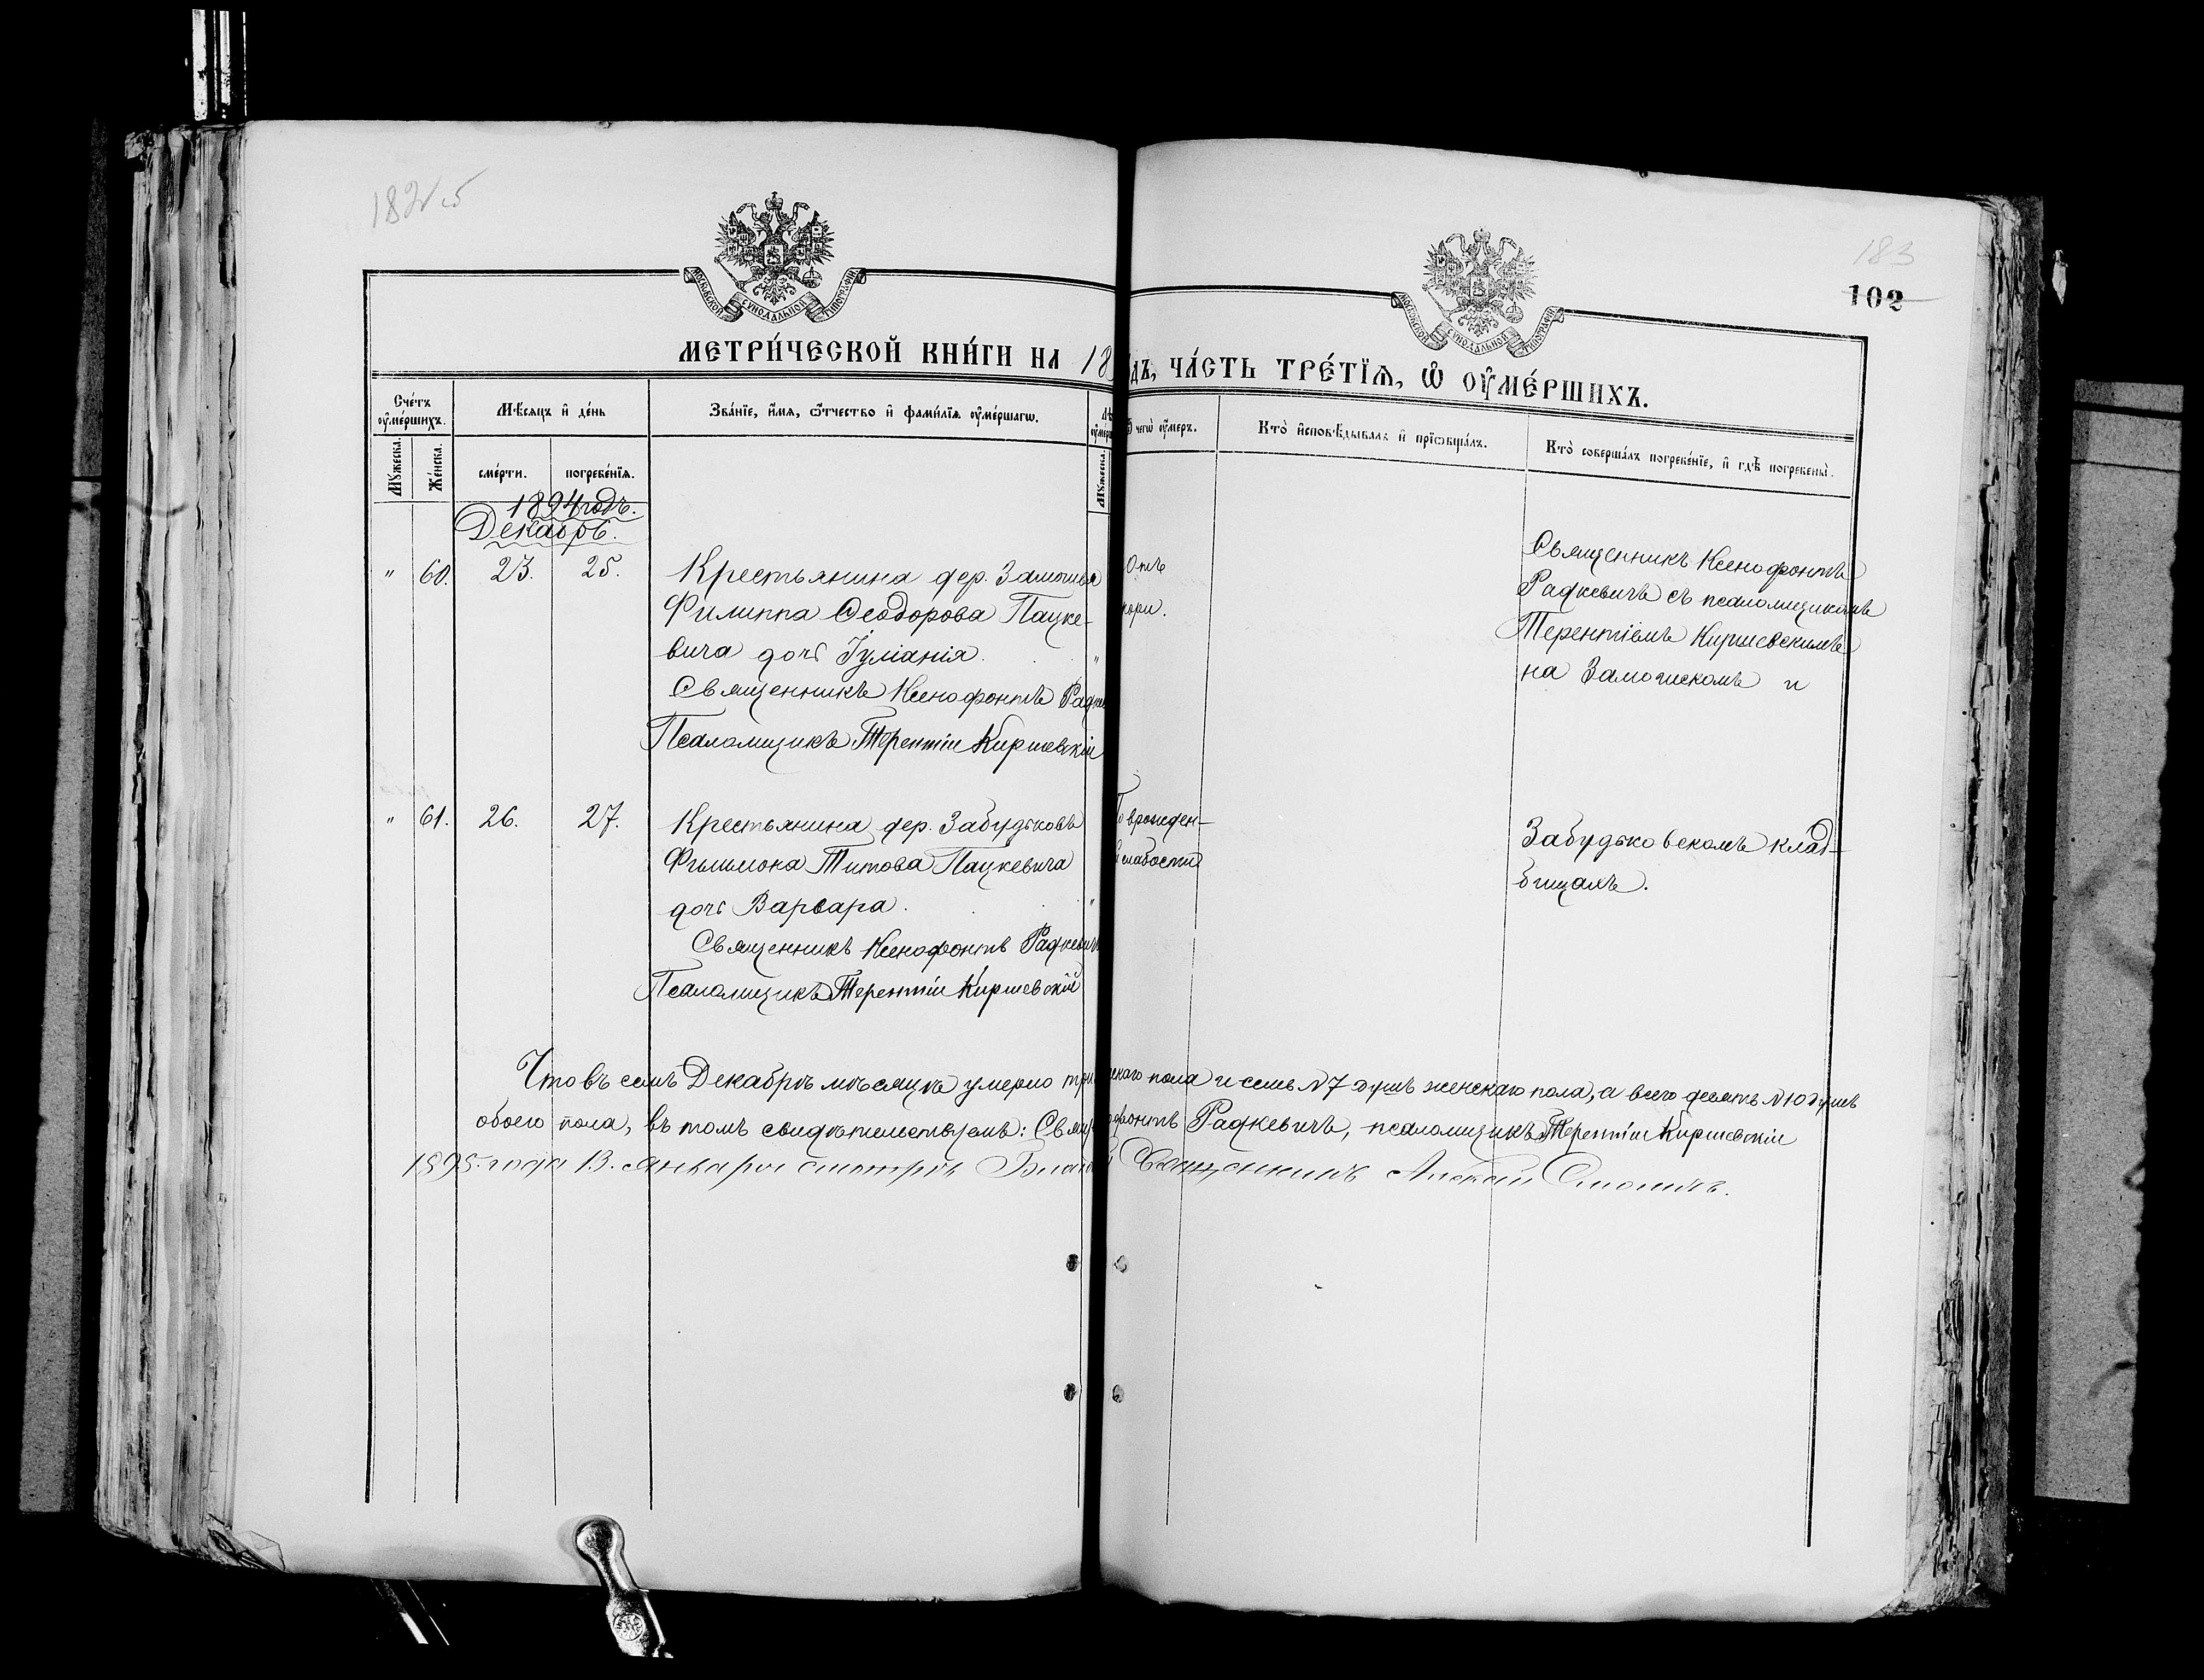 183
102
МОСКОВСКОЙ СѴНОДАЛЬНОЙ ТИПОГРАФІИ
МОСКОВСКОЙ СѴНОДАЛЬНОЙ ТИПОГРАФІИ
МЕТРИ́ЧЕСКОЙ КНИ́ГИ НА 18 дъ, ЧА́СТЬ ТРЕ́ТЇѦ, Ѡ҆ ОУ҆МЕ́РШИХЪ.
Сче́тъ оу҆ме́ршихъ.
Мѣ́сѧцъ и҆ де́нь
Зва́нїе, и҆́мѧ, ѻ҆́тчество и҆ фами́лїѧ оу҆ме́ршагѡ.
чегѡ̀ оу҆́меръ.
Кто̀ и҆сповѣ́дывалъ и҆ прїѡбща́лъ.
Кто̀ соверша́лъ погребе́нїе, и҆ гдѣ̀ погребены̀.
Мꙋ́жеска.
Же́нска.
сме́рти.
погребе́нїѧ.
Мꙋ́жеска.
1894 годъ.
Декабрь.
" 60. 23. 25. Крестьянина дер. Замошья Отъ
Филиппа Ѳеодорова Пацке- кори.
вича дочь Іуліанія. "
Священникъ Ксенофонтъ Радке
Псаломщикъ Терентій Киршевскій
Священникъ Ксенофонтъ
Радкевичъ съ псаломщикомъ
Терентіемъ Киршевскимъ
на Замошскомъ и
" 61. 26. 27. Крестьянина дер. Забудьковъ врожден-
Филимона Титова Пацкевича слабости
дочь Варвара. "
Священникъ Ксенофонтъ Радкевичъ
Псаломщикъ Терентій Киршевскій
Забудьковскомъ клад-
бищахъ.
Что въ семъ Декабрѣ мѣсяцѣ умерло три скаго пола и семь № 7 душъ женскаго пола, а всего десять № 10 душъ
обоего пола, въ томъ свидѣтельствуемъ: Свящ офонтъ Радкевичъ, псаломщикъ Терентій Киршевскій
1895 года 13. Января смотрѣлъ Благоч Священникъ Алексій Смоличъ.